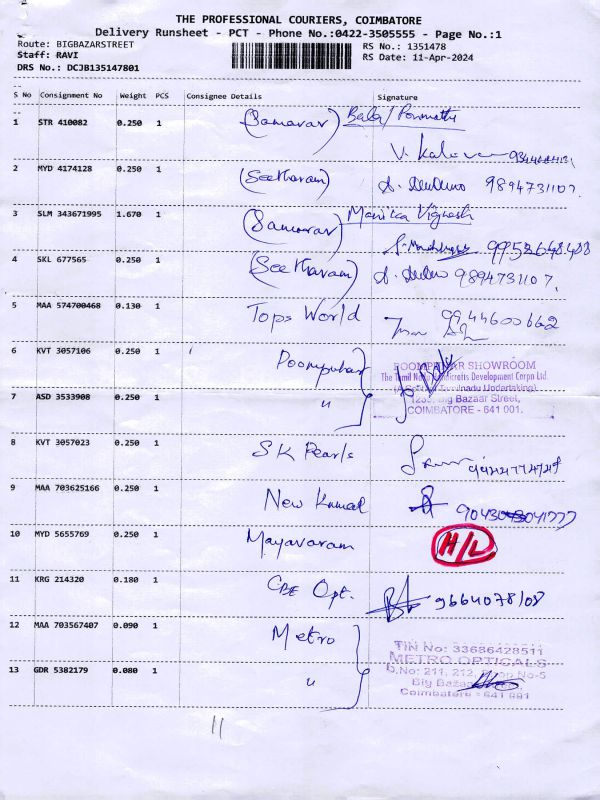 THE PROFESSIONAL COURIERS, COIMBATORE
Delivery Runsheet - PCT - Phone No.:0422-3505555 - Page No.:1
Route: BIGBAZARSTREET RS No.: 1351478
Staff: RAVI RS Date: 11-Apr-2024
DRS No.: DCJB135147801
S No Consignment No Weight PCS Consignee Details Signature
1 STR 410082 0.250 1 (Samarar) Bala/
2 MYD 4174128 0.250 1 (Seetharam) 9894731107.
3 SLM 343671995 1.670 1 (Samarar) Monika Vignesh
9952648488
4 SKL 677565 0.250 1 (Seetharam) 9894731107.
5 MAA 574700468 0.130 1 Tops World 9944600662
6 KVT 3057106 0.250 1 Poompuhar POOMPUHAR SHOWROOM
The Tamil Nadu Handicrafts Development Corpn Ltd.
(A Govt. of Tamilnadu Undertaking)
7 ASD 3533908 0.250 1 " Big Bazaar Street,
COIMBATORE - 641 001.
8 KVT 3057023 0.250 1 SK Pearls
9 MAA 703625166 0.250 1 New Kumal
10 MYD 5655769 0.250 1 Mayavaram H/L
11 KRG 214320 0.180 1 CBE Opt. 9664078108
12 MAA 703567407 0.090 1 Metro TIN No: 33686428511
METRO OPTICALS
D.No: 211, 212, Shop No-5
13 GDR 5382179 0.080 1 " Big Bazaar
Coimbatore - 641 001
11